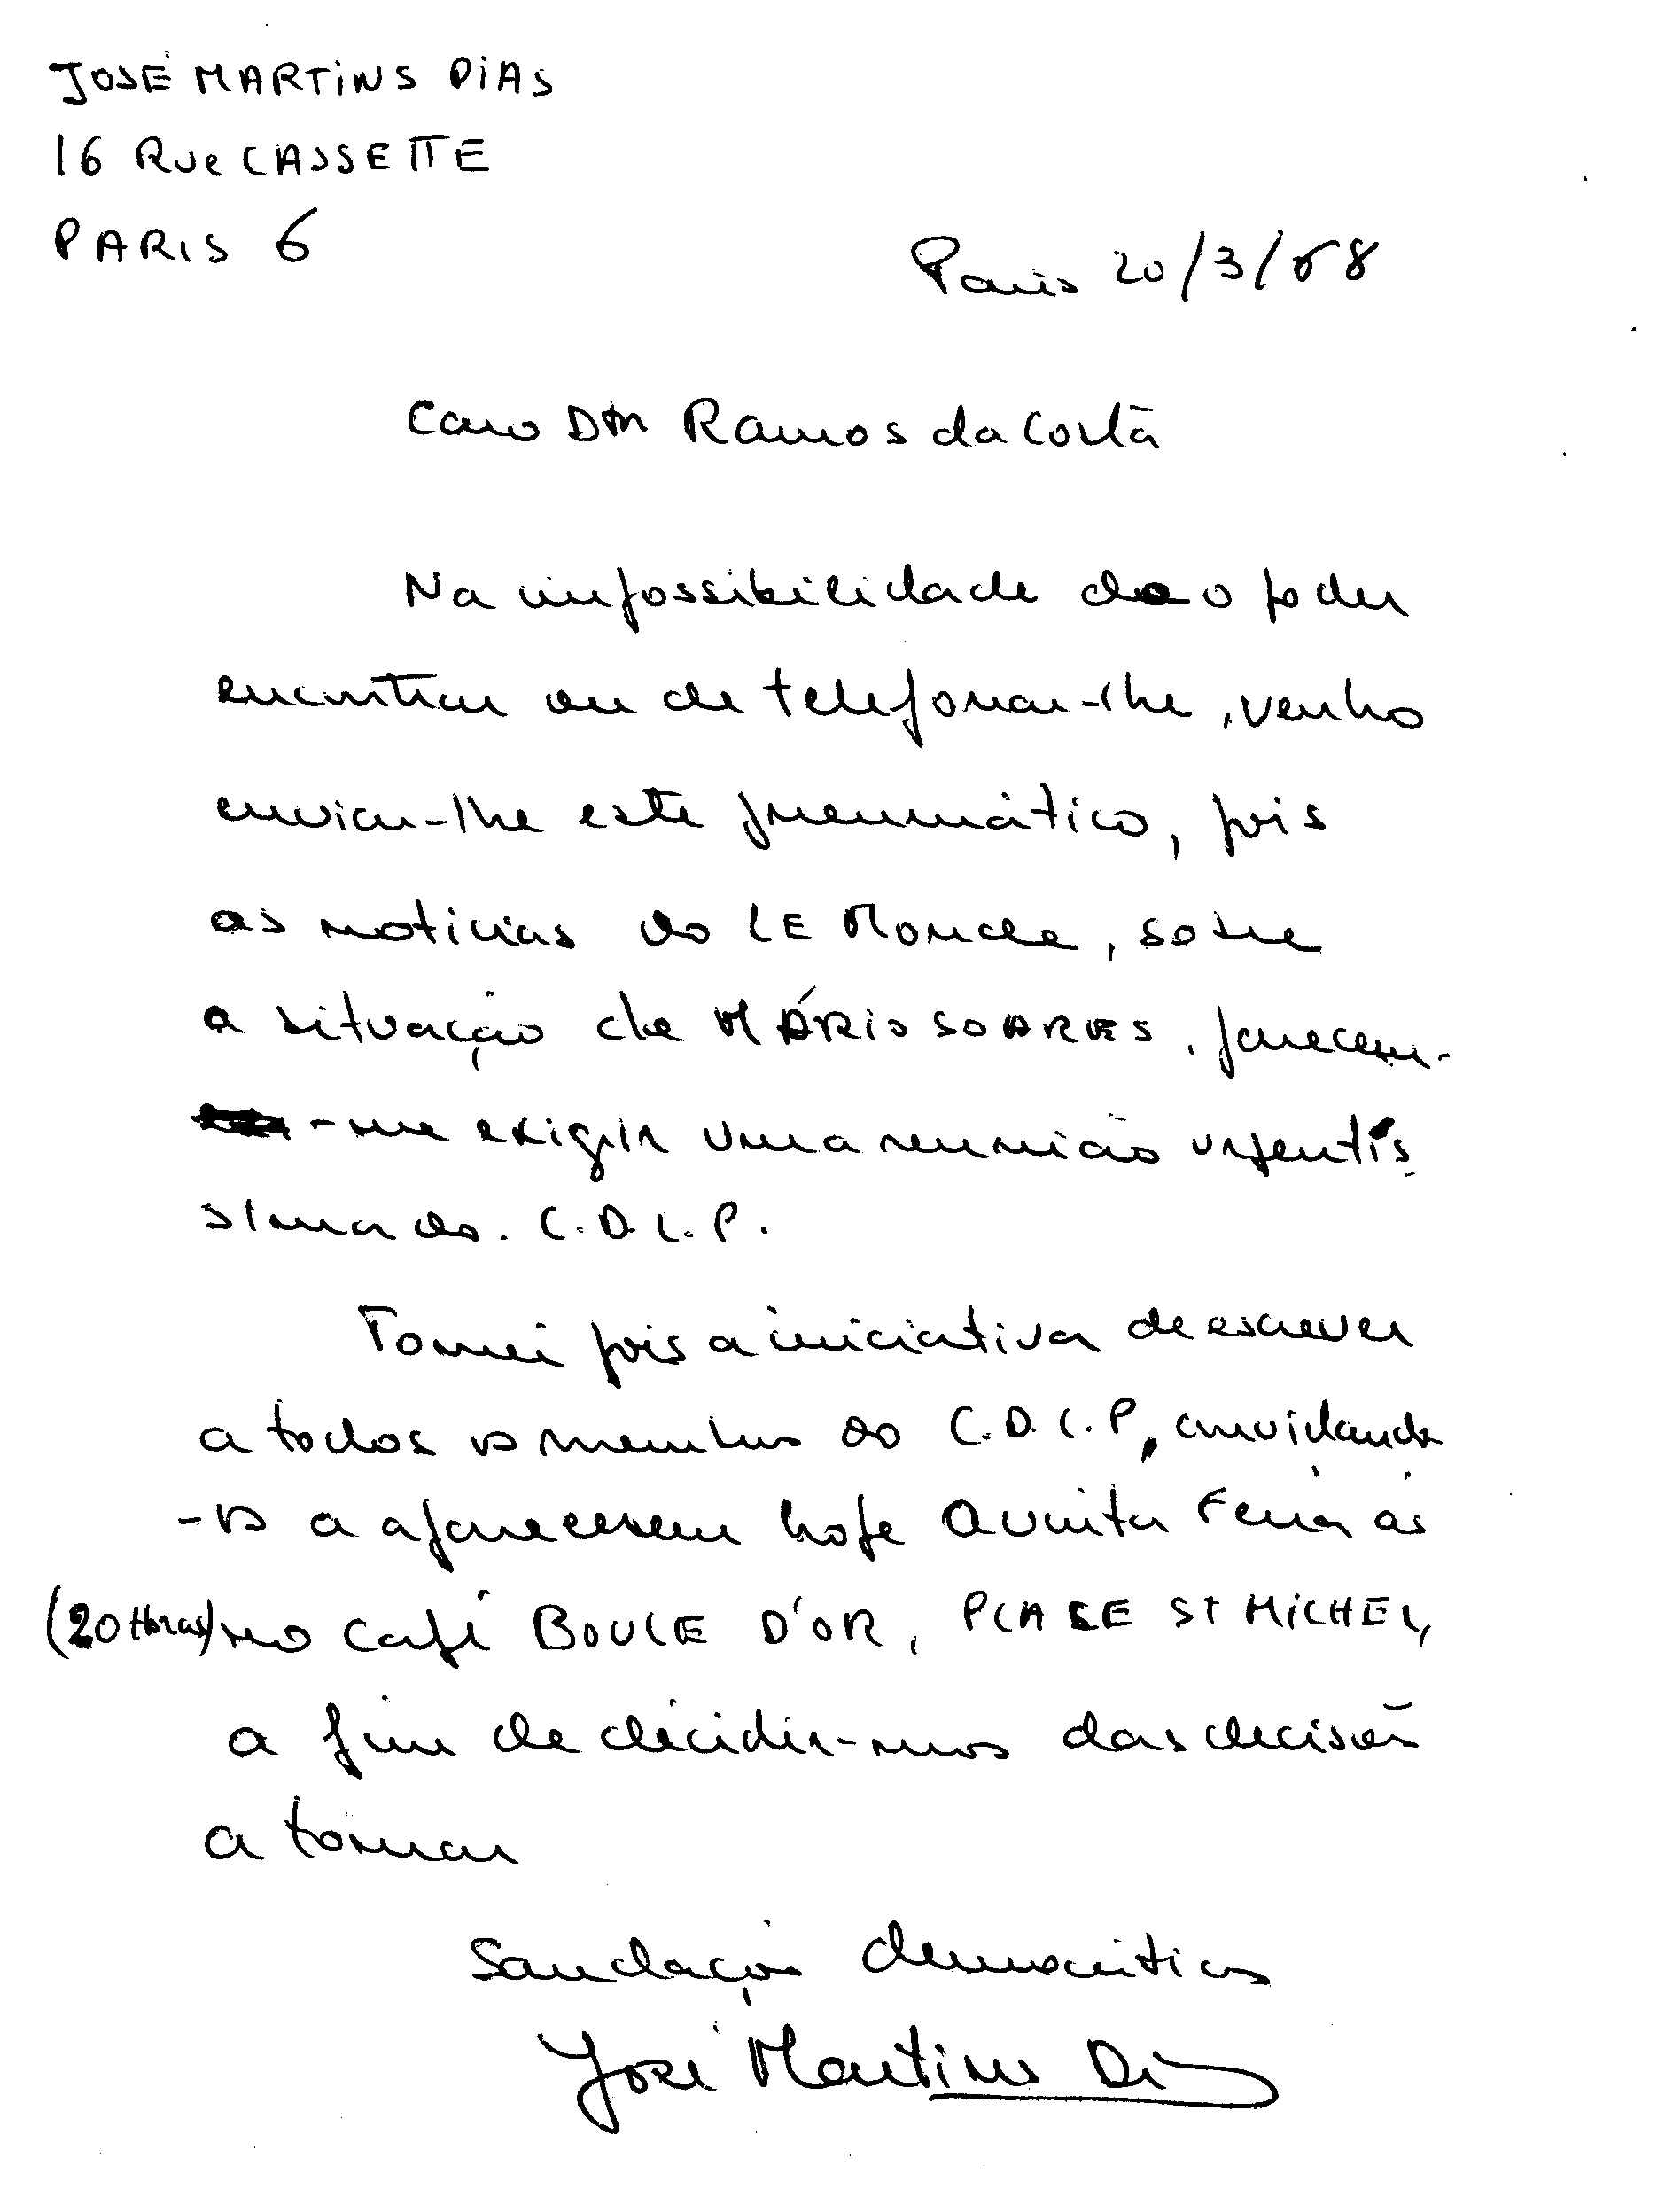 JOSÉ MARTINS DIAS
16 RUE CASSETTE
PARIS 6
Paris 20/3/68
Caro Dtr Ramos da Costa
Na impossibilidade de o poder
encontrar ou de telefonar-lhe, venho
enviar-lhe este pneumático, pois
as noticias do LE Monde, sobre
a situação de MÁRIO SOARES, parecem-
-me exigir uma reunião urgentís
sima do. C.D.L.P.
Tomei pois a iniciativa de escrever
a todos os membros do C.D.L.P, convidando
-os a aparecerem hoje Quinta Feira às
(20 Horas) no café BOULE D'OR, PLASE ST MICHEL,
a fim de decidir-mos das decisões
a tomar
Saudações democráticas
José Martins Dias